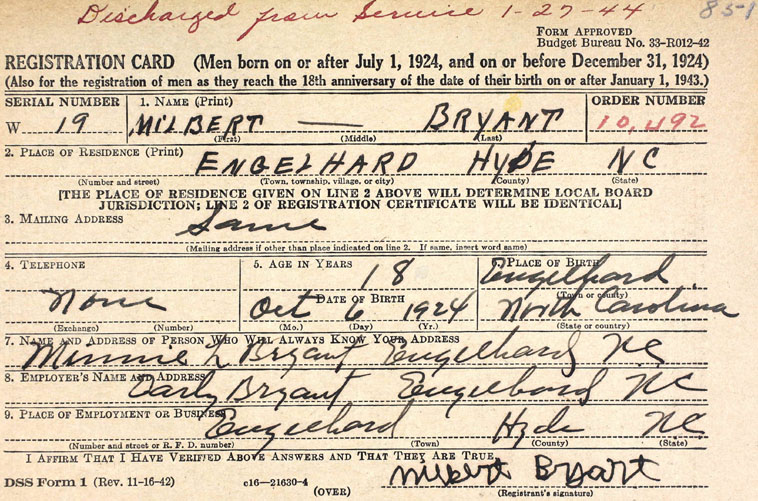 Discharged from Service 1-27-44 85-1
FORM APPROVED
Budget Bureau No. 33-R012-42
REGISTRATION CARD (Men born on or after July 1, 1924, and on or before December 31, 1924)
(Also for the registration of men as they reach the 18th anniversary of the date of their birth on or after January 1, 1943.)
SERIAL NUMBER 1. NAME (Print) ORDER NUMBER
W 19 MILBERT — BRYANT 10,492
(First) (Middle) (Last)
2. PLACE OF RESIDENCE (Print)
ENGELHARD HYDE NC
(Number and street) (Town, township, village, or city) (County) (State)
[THE PLACE OF RESIDENCE GIVEN ON LINE 2 ABOVE WILL DETERMINE LOCAL BOARD
JURISDICTION; LINE 2 OF REGISTRATION CERTIFICATE WILL BE IDENTICAL]
3. MAILING ADDRESS
Same
(Mailing address if other than place indicated on line 2. If same, insert word same)
4. TELEPHONE 5. AGE IN YEARS 6. PLACE OF BIRTH
18 Engelhard
DATE OF BIRTH (Town or county)
None Oct 6 1924 North Carolina
(Exchange) (Number) (Mo.) (Day) (Yr.) (State or country)
7. NAME AND ADDRESS OF PERSON WHO WILL ALWAYS KNOW YOUR ADDRESS
Minnie L Bryant Engelhard NC
8. EMPLOYER'S NAME AND ADDRESS
Early Bryant Engelhard NC
9. PLACE OF EMPLOYMENT OR BUSINESS
Engelhard Hyde NC
(Number and street or R. F. D. number) (Town) (County) (State)
I AFFIRM THAT I HAVE VERIFIED ABOVE ANSWERS AND THAT THEY ARE TRUE.
Milbert Bryant
DSS Form 1 (Rev. 11-16-42) c16—21630-4
(OVER) (Registrant's signature)